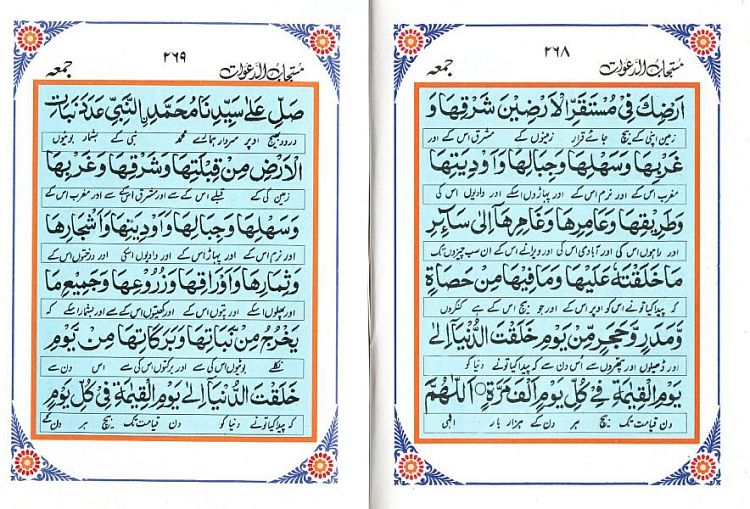 جمعه ۲۶۸ مستجاب الدعوات
اَرْضِكَ فِيْ مُسْتَقَرِّ الْاَرْضِيْنَ شَرْقِهَا وَ
زمین اپنی کے بیچ جائے قرار زمینوں کے مشرق اس کے اور
غَرْبِهَا وَسَهْلِهَا وَجِبَالِهَا وَاَوْدِيَتِهَا
مغرب اس کے اور نرم اس کے اور پہاڑوں اسکے اور وادیوں اس کی
وَطَرِيْقِهَا وَعَامِرِهَا وَغَامِرِهَا اِلٰى سَآئِرِ
اور راہوں اس کی اور آبادی اس کی اور ویرانے اس کے ان سب چیزوں تک
مَا خَلَقْتَهٗ عَلَيْهَا وَمَا فِيْهَا مِنْ حَصَاةٍ
کہ پیدا کیا تونے اس کو اوپر اس کے اور جو بیچ اس کے ہے کنکروں
وَّمَدَرٍ وَّحَجَرٍ مِّنْ يَوْمِ خَلَقْتَ الدُّنْيَا اِلٰى
اور ڈھیلوں اور پتھروں سے اس دن سے کہ پیدا کیا تونے دنیا کو
يَوْمِ الْقِيٰمَةِ فِيْ كُلِّ يَوْمٍ اَلْفَ مَرَّةٍ ۝ اَللّٰهُمَّ
دن قیامت تک بیچ ہر دن کے ہزار بار الٰہی
جمعه ۲۶۹ مستجاب الدعوات
صَلِّ عَلٰى سَيِّدِنَا مُحَمَّدِ ࣙالنَّبِيِّ عَدَدَ نَبَاتِ
درود بھیج اوپر سردار ہمارے محمد نبی کے بشمار بوٹیوں
الْاَرْضِ مِنْ قِبْلَتِهَا وَشَرْقِهَا وَغَرْبِهَا
زمین کی کے قبلے اس کے سے اور مشرق اس کے سے اور مغرب اس کے
وَسَهْلِهَا وَجِبَالِهَا وَاَوْدِيَتِهَا وَاَشْجَارِهَا
اور نرم اس کے اور پہاڑ اس کے اور وادیوں اسکی اور درختوں اس کے
وَثِمَارِهَا وَاَوْرَاقِهَا وَزُرُوْعِهَا وَجَمِيْعِ مَا
اور پھلوں اسکے اور پتوں اس کے اور کھیتوں اس کے سے اور بشمار اسکے کہ
يَخْرُجُ مِنْ نَّبَاتِهَا وَبَرَكَاتِهَا مِنْ يَّوْمِ
نکلے بوٹیوں اس کی سے اور برکتوں اس کی سے اس دن سے
خَلَقْتَ الدُّنْيَا اِلٰى يَوْمِ الْقِيٰمَةِ فِيْ كُلِّ يَوْمٍ
کہ پیدا کیا تونے دنیا کو دن قیامت تک بیچ ہر دن کے